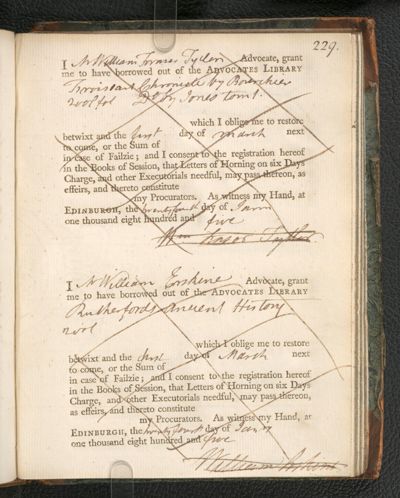 229.
I Mr William Fraser Tytler Advocate, grant
me to have borrowed out of the ADVOCATES LIBRARY
Froissart Chronicle by Bourchier
2 vol fol Do by Jones tom 1.
which I oblige me to restore
betwixt and the first day of March next
to come, or the Sum of
in case of Failzie; and I consent to the registration hereof
in the Books of Session, that Letters of Horning on six Days
Charge, and other Executorials needful, may pass thereon, as
effeirs, and thereto constitute
my Procurators. As witness my Hand, at
EDINBURGH, the twenty fourth day of Janry
one thousand eight hundred and five
Wm Fraser Tytler
I Mr William Erskine Advocate, grant
me to have borrowed out of the ADVOCATES LIBRARY
Rutherfords Ancient History
2 vol
which I oblige me to restore
betwixt and the first day of March next
to come, or the Sum of
in case of Failzie; and I consent to the registration hereof
in the Books of Session, that Letters of Horning on six Days
Charge, and other Executorials needful, may pass thereon,
as effeirs, and thereto constitute
my Procurators. As witness my Hand, at
EDINBURGH, the twenty fourth day of Janry
one thousand eight hundred and five
William Erskine